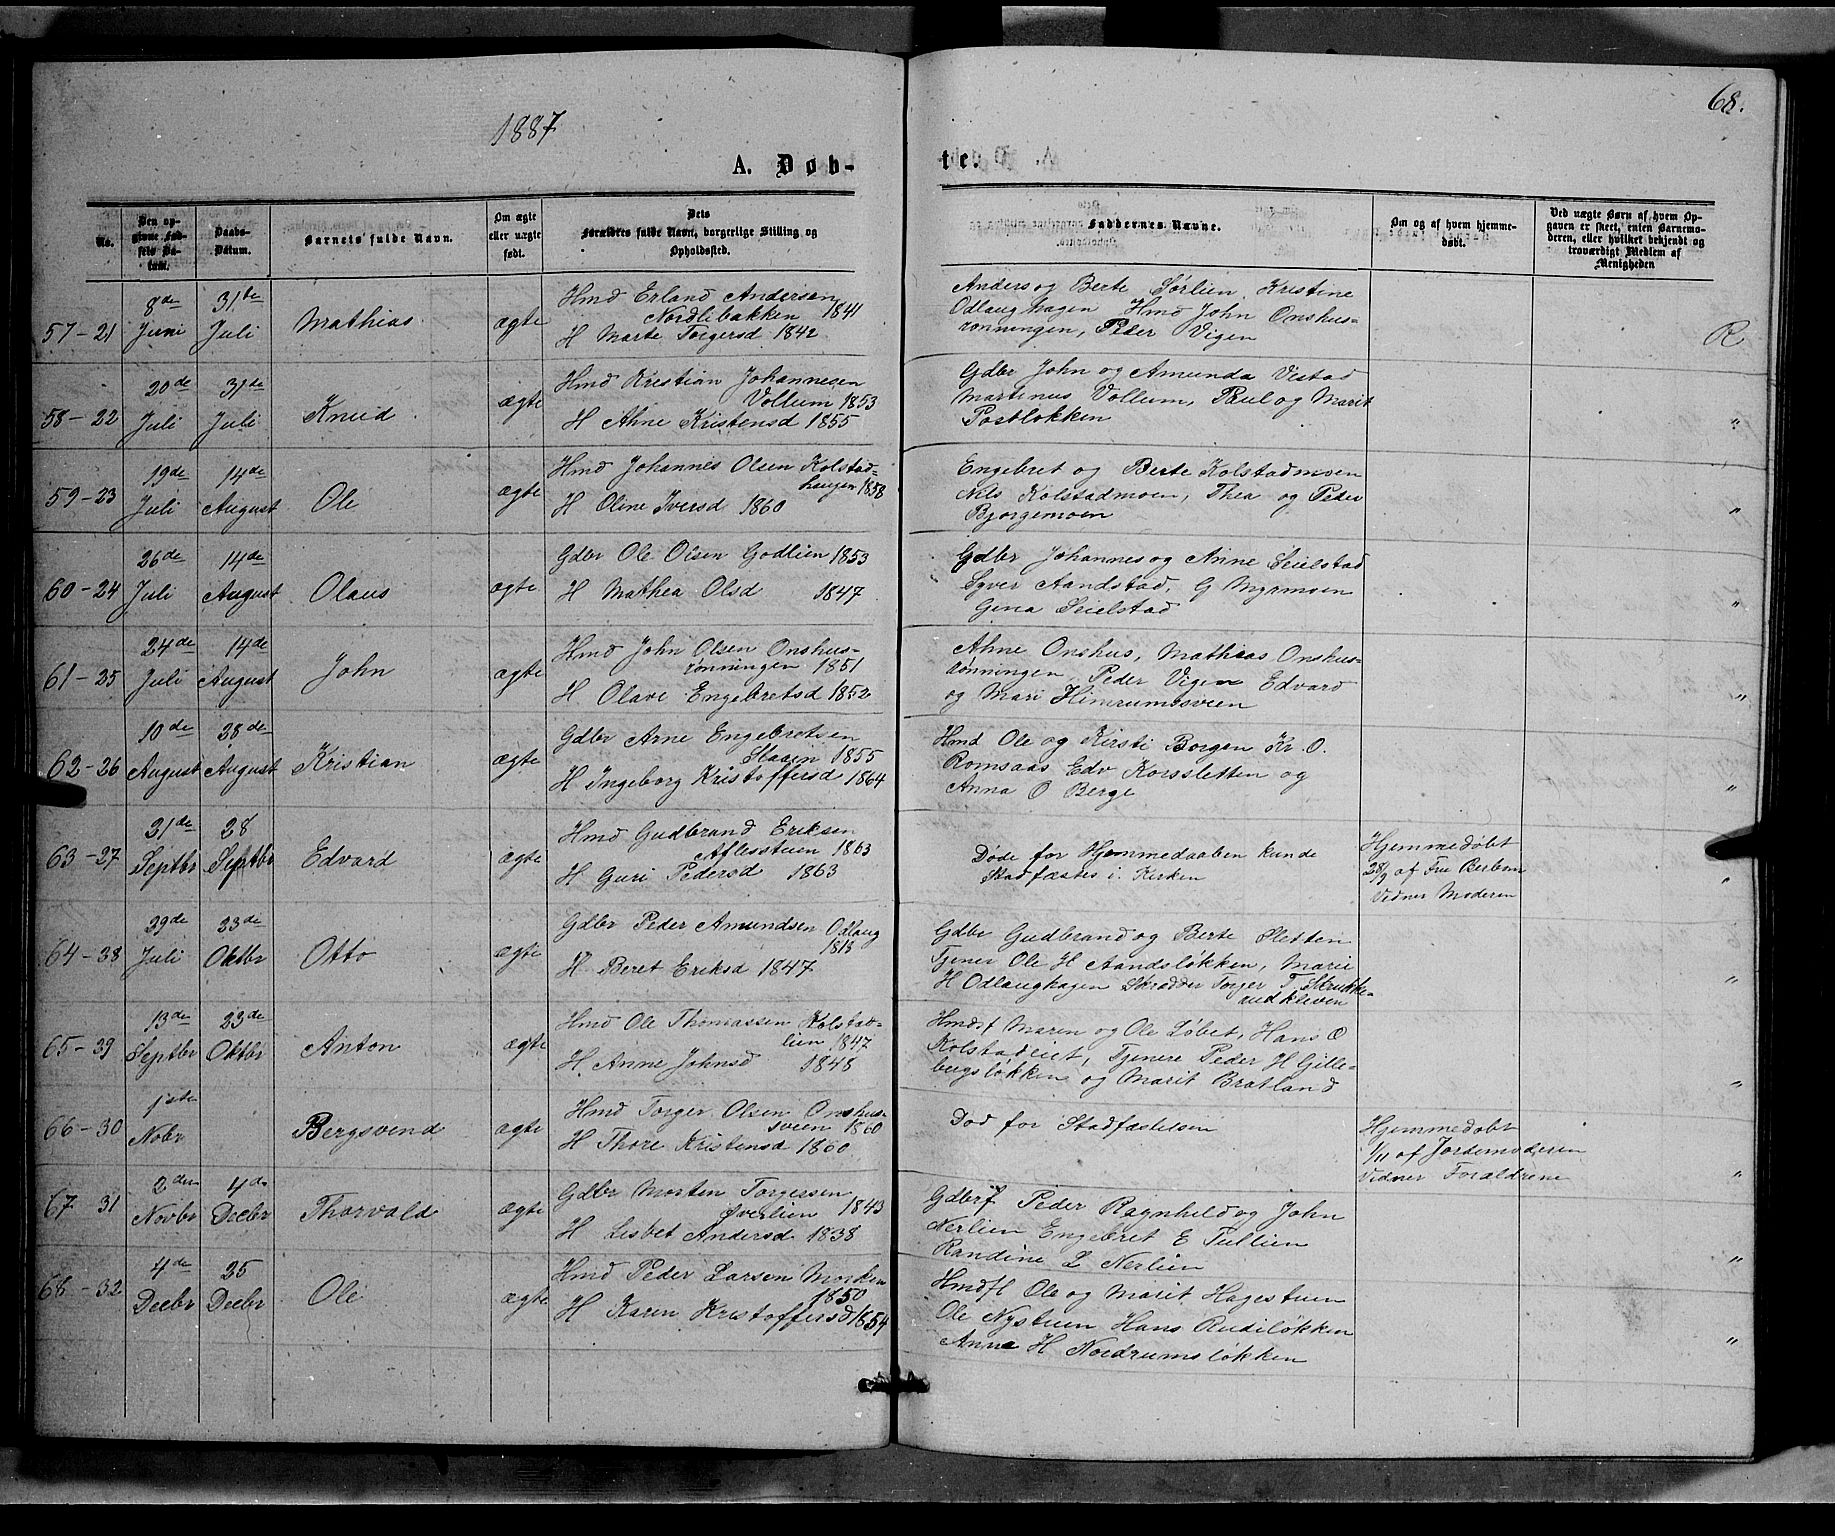 1887
68.
A. Døb-
te.
No.
Den op-
givne Fød-
sels Da-
tum.
Daabs-
Datum.
Barnets fulde Navn.
Om ægte
eller uægte
født.
Dets
Forældres fulde Navn, borgerlige Stilling og
Opholdssted.
Faddernes Navne.
Om og af hvem hjemme-
døbt.
Ved uægte Børn af hvem Op-
gaven er skeet, enten Barnemo-
deren, eller hvilket bekjendt og
troværdigt Medlem af
Menigheden
57-21 8de Juni 31te Juli Mathias ægte
Hmd Erland Andersen
Nordlibakken 1841
H Marte Torgersd 1842
Anders og Berte Sørlien Kristine
Odlaughagen Hmd John Onshus-
rønningen, Peder Vigen
R
58-22 20de Juli 31te Juli Knud ægte
Hmd Kristian Johannesen
Vollum 1853
H Ahne Kristensd 1855
Gdbr John og Amunda Vistad
Martinus Vollum, Paul og Marit
Postløkken
"
59-23 19de Juli 14de August Ole ægte
Hmd Johannes Olsen Kolstad-
haugen 1858
H Oline Iversd 1860
Engebret og Berte Kolstadmoen
Nils Kolstadmoen, Thea og Peder
Bjørgemoen
"
60-24 26de Juli 14de August Olaus ægte
Gdbr Ole Olsen Godlien 1853
H Mathea Olsd 1847
Gdbr Johannes og Anne Seielstad
Syver Aandstad, G Myrmoen
Gina Seielstad
"
61-25 24de Juli 14de August John ægte
Hmd John Olsen Onshus-
rønningen 1851
H. Olave Engebretsd 1852
Ahne Onshus, Mathias Onshus-
rønningen Peder Vigen Edvard
og Mari Himrumsveen
"
62-26 10de August 28de August Kristian ægte
Gdbr Arne Engebretsen
Slaaen 1855
H Ingeborg Kristoffersd 1864
Hmd Ole og Kirsti Borgen Kr. O.
Romsaas Edv Korssletten og
Anna O Berge
"
63-27 21de Septbr 28 Septbr Edvard ægte
Hmd Gudbrand Eriksen
Aflesstuen 1863
H Guri Pedersd 1863
Døde før Hjemmedaaben kunde
Stadfæstes i Kirken
Hjemmedøbt
28/9 af Fru
Vidner Moderen
"
64-38 29de Juli 23de Oktbr Otto ægte
Gdbr Peder Amundsen Odlaug
1818
H Beret Eriksd 1847
Gdbr Gudbrand og Berte Sletten
Tjener Ole H Aandsløkken, Marie
H Odlaughagen Skrædder Torger T. Strukke-
rudkleven
"
65-39 13de Septbr 23de Oktbr Anton ægte
Hmd Ole Thomassen Kolstad-
lien 1847
H. Anne Johnsd 1848
Hmdsf Maren og Ole Løbet, Hans O
Kolstadeiet, Tjenere Peder H Gille-
bugsløkken og Marit Bratland
"
66-30 1ste Nobr Bergsvend ægte
Hmd Torger Olsen Onshus-
sveen 1860
H Thore Kristensd 1860
Død før Stadfæstelsen
Hjemmedøbt
1/11 af Jordemoderen
Vidner Forældrene
"
67 31 2den Novbr 4de Decbr Thorvald ægte
Gdbr Morten Torgersen
Øverlien 1843
H Lisbet Andersd 1838
Gdbrf Peder Ragnhild og John
Nerlien Engebret E Tullien
Randine L Nerlien
"
68-32 4de Decbr 25 Decbr Ole ægte
Hmd Peder Larsen Morken
1850
H Karen Kristoffersd 1854
Hmdf Ole og Marit Hagestuen
Ole Nystuen Hans Rudiløkken
Anne H Nordrumsløkken
"